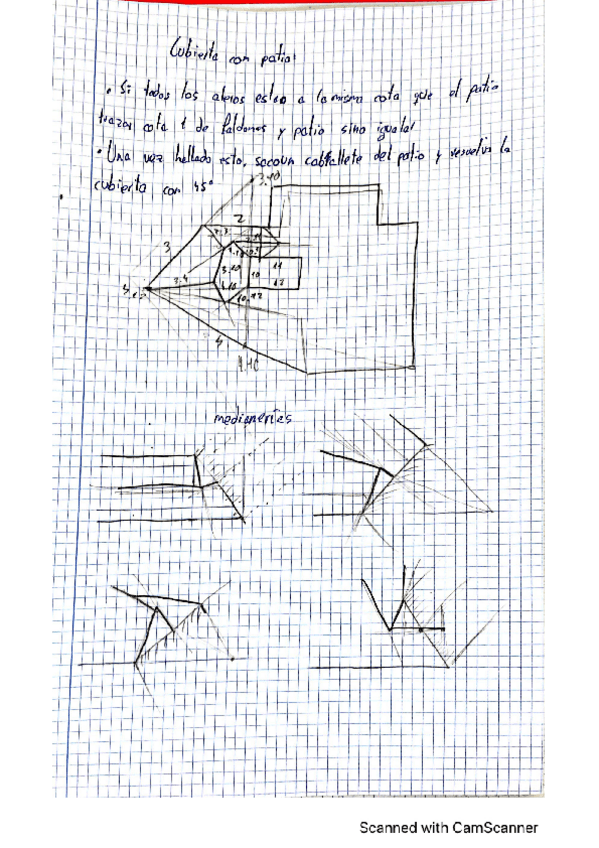 Cubierta con patio:
• Si todos los aleros estan a la misma cota que el patio
trazar cota 1 de faldones y patio sino igualar
• Una vez hallado esto, saco un caballete del patio y resuelvo la
cubierta con 45°
3,10
2
3
2,3
3,4
3,10
10
11
12
10,12
4
4,10
medianerías
Scanned with CamScanner